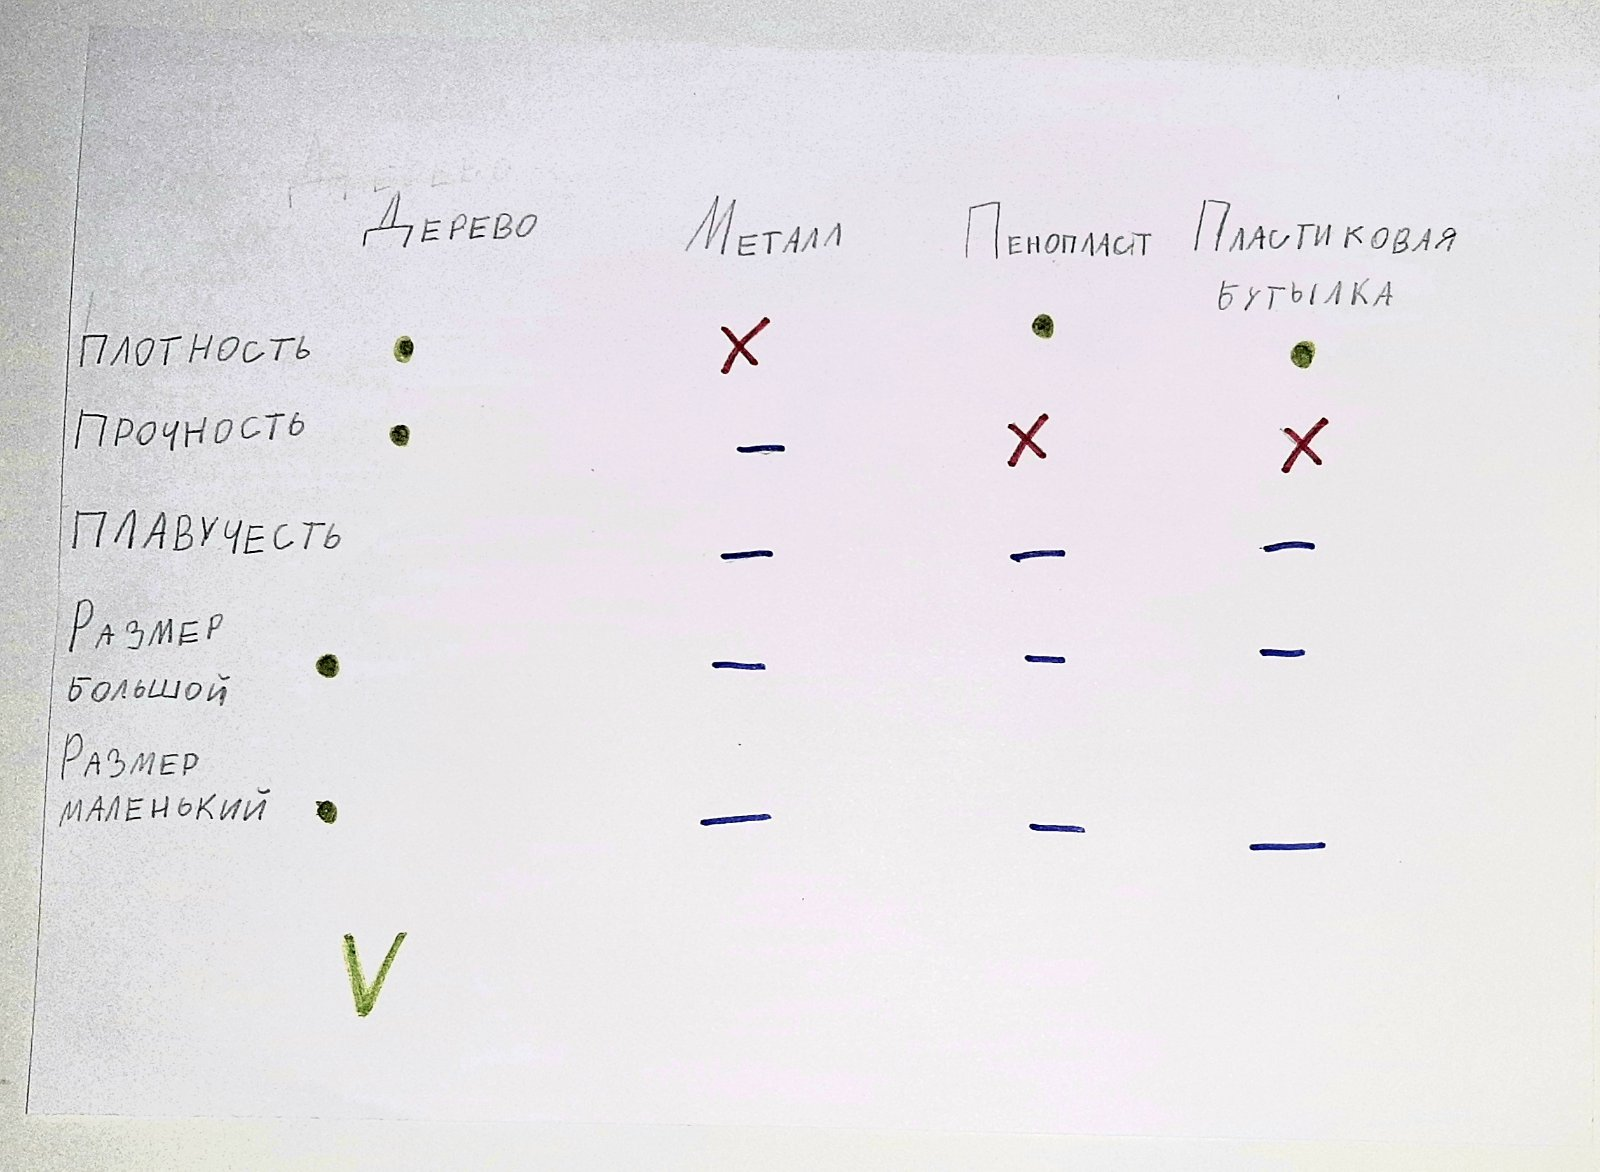 Дерево Металл Пенопласт Пластиковая
бутылка
плотность
Прочность
плавучесть
Размер
большой
Размер
маленький